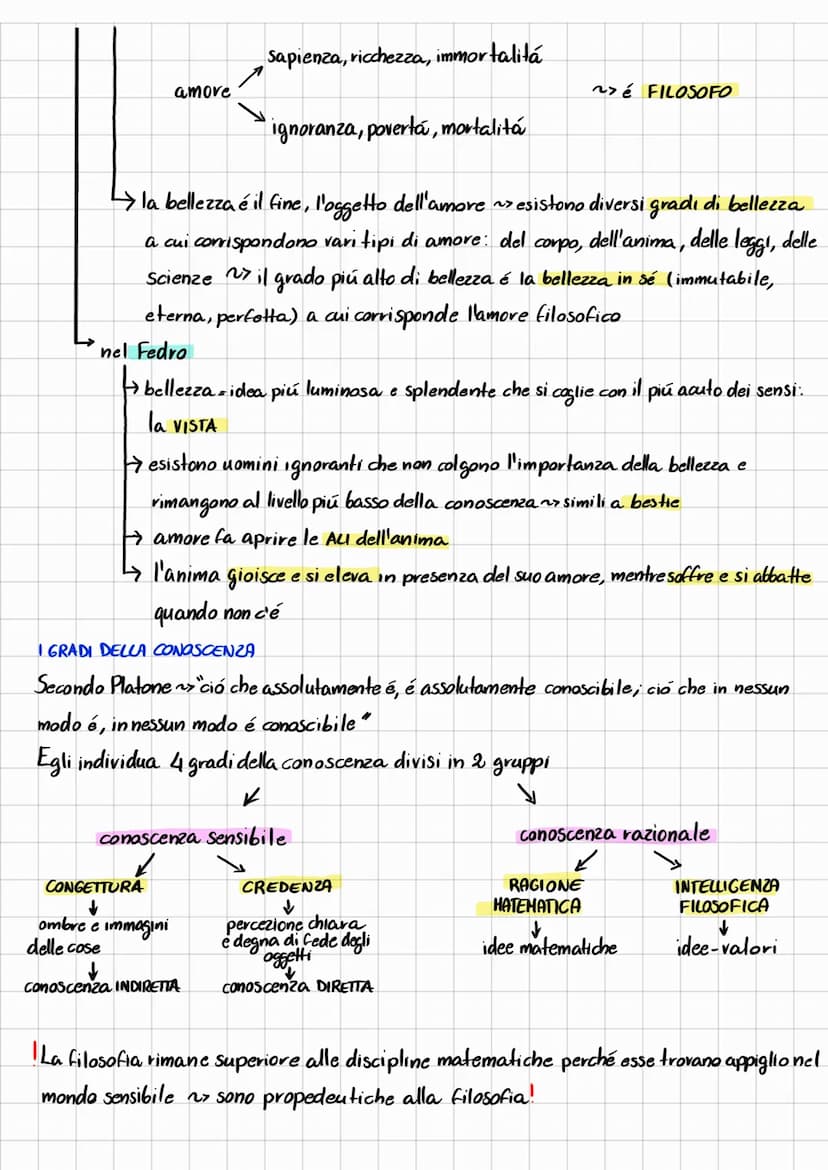 sapienza, ricchezza, immortalitá
amore
~> é FILOSOFO
ignoranza, povertá, mortalitá
la bellezza é il fine, l'oggetto dell'amore ~> esistono diversi gradi di bellezza
a cui corrispondono vari tipi di amore: del corpo, dell'anima, delle leggi, delle
scienze ~> il grado piú alto di bellezza é la bellezza in sé (immutabile,
eterna, perfetta) a cui corrisponde l'amore filosofico
nel Fedro
bellezza = idea piú luminosa e splendente che si coglie con il piú acuto dei sensi:
la VISTA
esistono uomini ignoranti che non colgono l'importanza della bellezza e
rimangono al livello piú basso della conoscenza ~> simili a bestie
amore fa aprire le ALI dell'anima
l'anima gioisce e si eleva in presenza del suo amore, mentre soffre e si abbatte
quando non c'é
I GRADI DELLA CONOSCENZA
Secondo Platone ~> "ció che assolutamente é, é assolutamente conoscibile; ció che in nessun
modo é, in nessun modo é conoscibile"
Egli individua 4 gradi della conoscenza divisi in 2 gruppi
conoscenza sensibile
conoscenza razionale
CONGETTURA
CREDENZA
RAGIONE
MATEMATICA
INTELLIGENZA
FILOSOFICA
ombre e immagini
delle cose
percezione chiara
e degna di fede degli
oggetti
idee matematiche
idee-valori
conoscenza INDIRETTA
conoscenza DIRETTA
!La filosofia rimane superiore alle discipline matematiche perché esse trovano appiglio nel
mondo sensibile ~> sono propedeutiche alla filosofia!